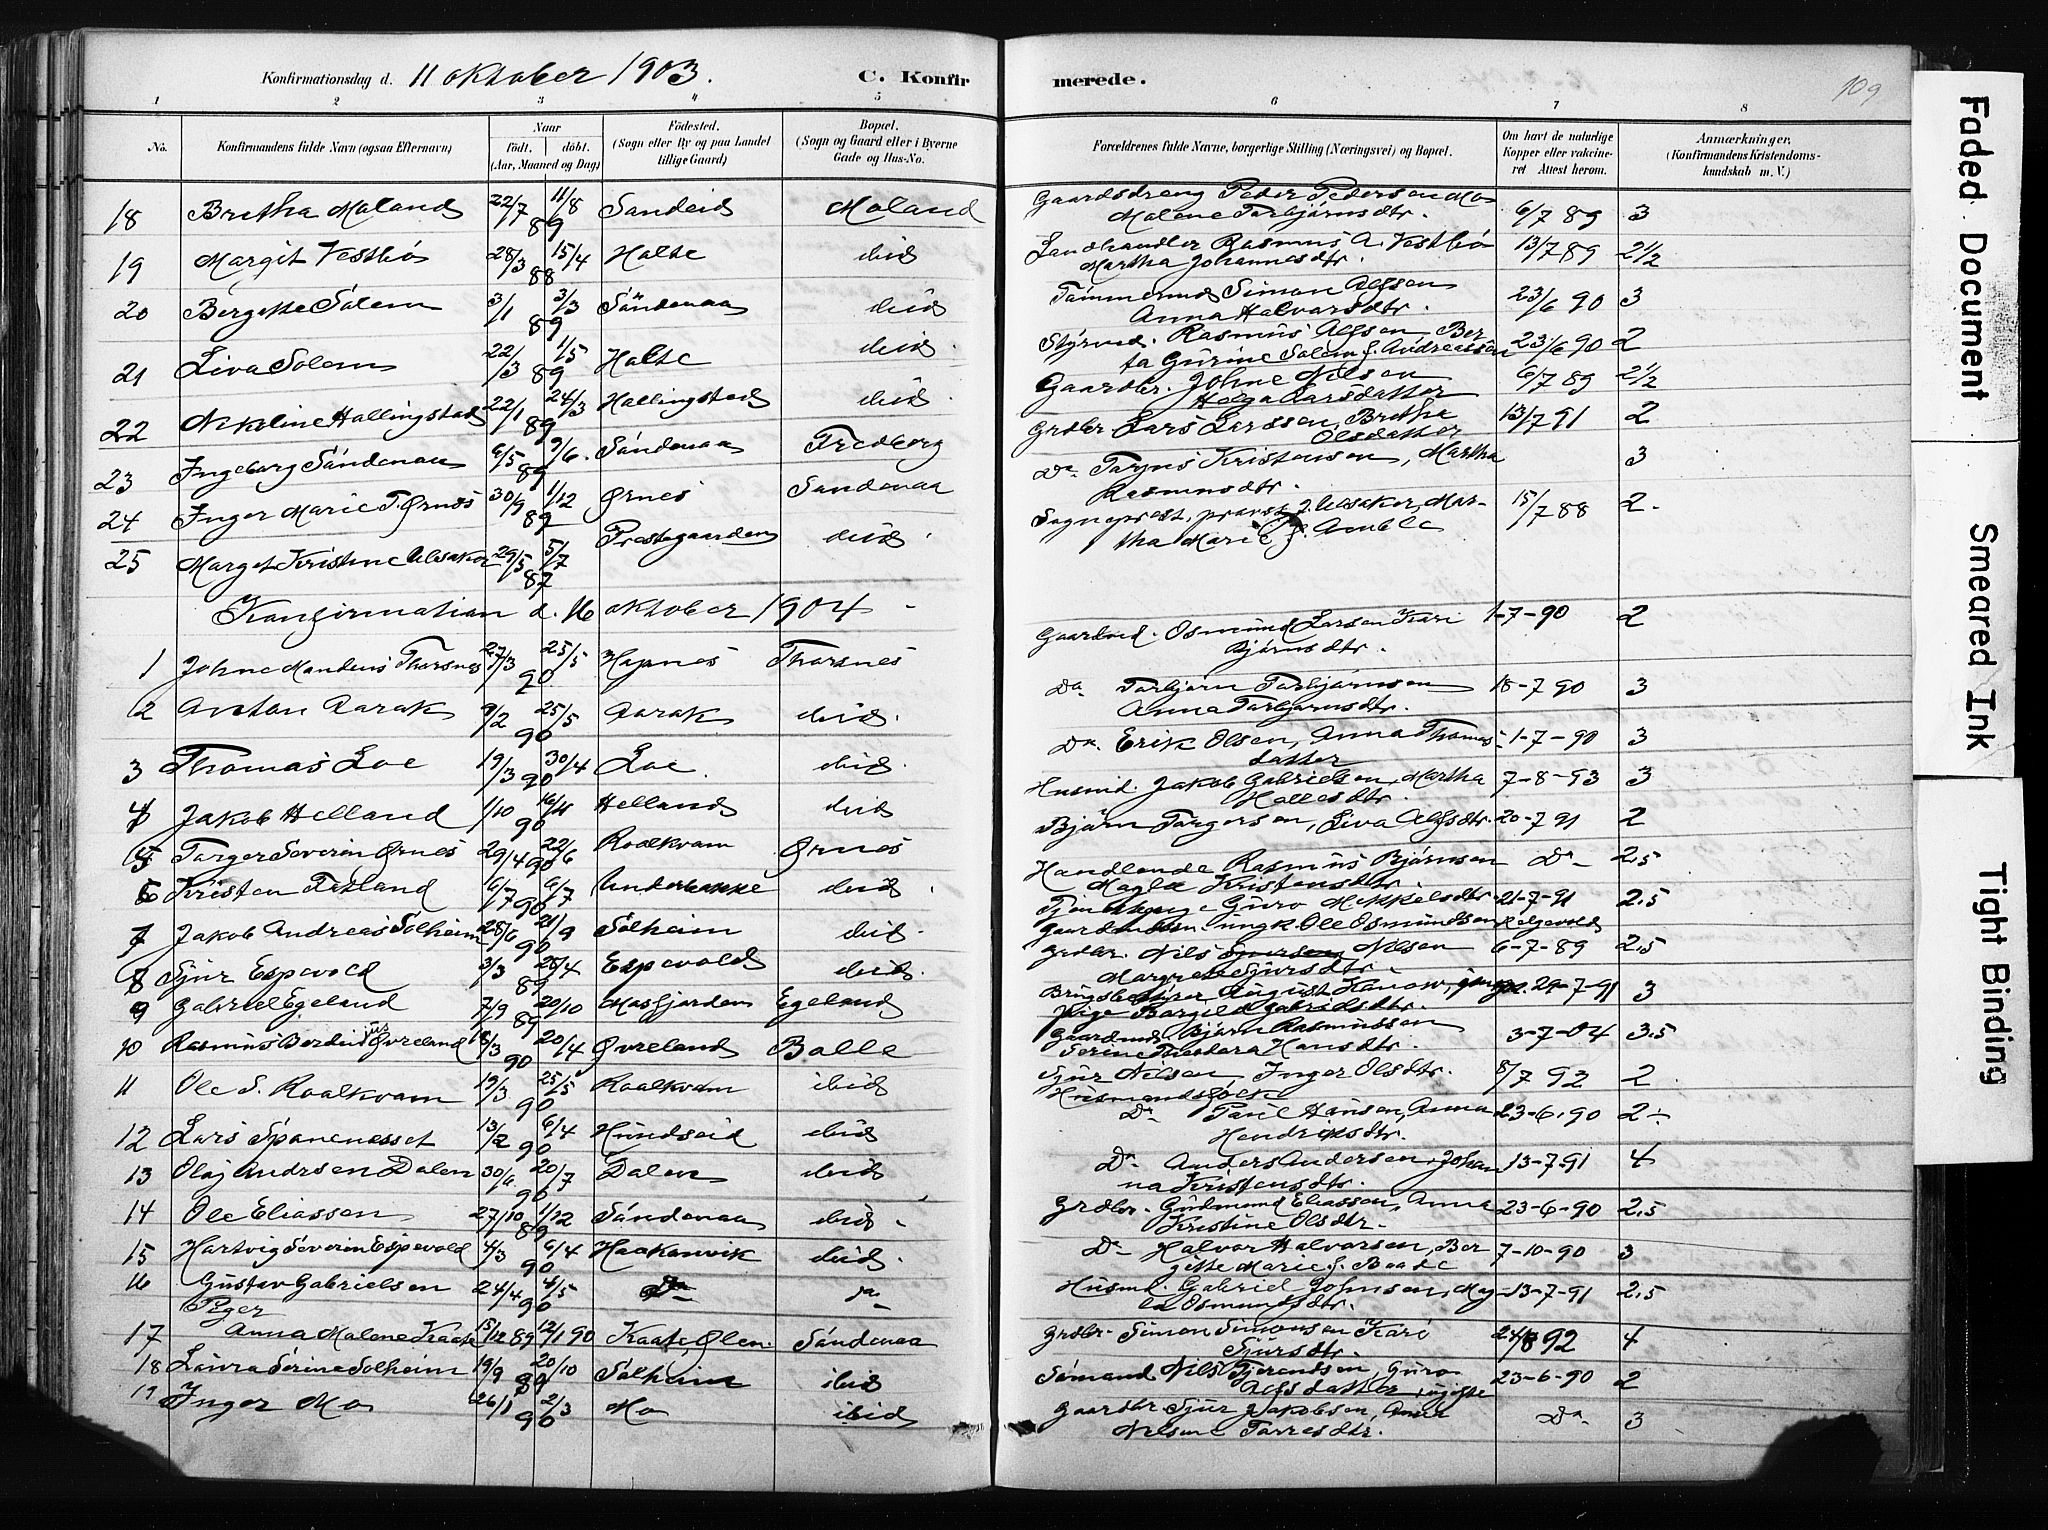 Konfirmationsdag d. 11 oktober 1903.
C. Konfir
merede.
109
1 2 3 4 5 6 7 8
No.
Konfirmandens fulde Navn (ogsaa Efternavn)
Naar
Født, døbt.
(Aar, Maaned og Dag)
Fødested.
(Sogn eller By og paa Landet
tillige Gaard)
Bopæl.
(Sogn og Gaard eller i Byerne
Gade og Hus-No.
Forældrenes fulde Navne, borgerlige Stilling (Næringsvei) og Bopæl.
Om havt de naturlige
Kopper eller vakcine-
ret Attest herom.
Anmærkninger,
(Konfirmandens Kristendoms-
kundskab m. V.)
18 Bertha Moland 22/7 11/8 89 Sandeid Moland Gaardsdreng Peder Pedersen Mo
Malene Torbjørnsdtr. 6/7 89 3
19 Margit Vestbø 28/3 15/4 88 Halte ibid Landhandler Rasmus A. Vestbø
Martha Johannesdtr. 13/7 89 2½
20 Bergitte Solem 3/1 3/3 89 Søndenaa ibid Tømmermd Simon Alfsen
Anna Halvorsdtr. 23/6 90 3
21 Liva Solem 22/3 1/5 89 Halte ibid. Styrmd. Rasmus Alfsen Ber
ta Gurine Solem f. Andreassen 23/6 90 2
22 Nikoline Hallingstad 22/1 24/3 89 Hallingstad ibid. Gaardbr. Johne Nilsen
Helga Larsdatter 6/7 89 2½
23 Ingeborg Søndenaa 6/5 9/6 89 Søndenaa Fredberg Grdbr Lars Larssen, Britha
Olsdatter 13/7 91 2
24 Inger Marie T. Ørnes 30/9 1/12 89 Ørnes Søndenaa Do Kristensen, Martha
Rasmusdtr. 3
25 Marget Kristine Alsaker 29/5 5/7 87 Prestegaarden ibid. Sogneprest, provst J. Alsaker, Mar-
tha Marie f. Amble 15/7 88 2.
Konfirmation d. 16 oktober 1904
1 Johne Mandius Thorsnes 27/3 25/5 90 Hapnes Thorsnes Gaardmd. Osmund Larsen Kari
Bjørnsdtr. 1-7-90 2
2 Anton Aarak 9/2 25/5 90 Aarak ibid. Do Torbjørn Torbjørnsen
Anna Torbjørnsdtr. 18-7 90 3
3 Thomas Loe 19/3 30/4 90 Loe. ibid. Do. Erik Olsen, Anna Thomas-
datter 1-7-90 3
4 Jakob Helland 1/10 16/11 90 Helland ibid Husmd. Jakob Gabrielsen, Martha
Hallesdtr. 7-8-93 3
5 Torger Severin Ørnes 29/4 22/6 90 Roalkvam Ørnes Bjørn Torgersen, Liva Alfsdtr. 20-7 91 2
6 Kristen Tesland 6/7 6/7 90 Underbakke ibid. Handlende Rasmus Bjørnsen
Magla Kristensdtr. Do 2,5
7 Jakob Andreas Solheim 28/6 21/9 90 Solheim ibid. Tjenestepige Guro Mikkelsdtr
Gaardmdsøn ungk Ole Osmundsen Helgevold 21-7-91 2,5
8 Sjur Espevold 3/3 28/4 89 Espevold ibid. Grdbr. Nils Nilsen
Margrete Sjursdtr. 6-7-89 2,5
9 Gabriel Egeland 7/9 20/10 89 Masfjorden Egeland Brugsbestyrer August
pige Borgild Gabrielsdtr. 29-7-91 3
10 Rasmus Berdinius Øvreland 18/3 20/4 90 Øvreland Balle Gaardmd. Bjørn Rasmussen
Serine Theodora Hansdtr. 3-7-04 3,5
11 Ole S. Roalkvam 19/3 25/5 90 Roalkvam ibid Sjur Nilsen, Inger Olsdtr.
Husmandsfolk 8/7 92 2
12 Lars Spanenesset 13/2 6/4 90 Hundseid ibid Do Paul Hansen, Anna
Hendriksdtr. 23-6-90 2
13 Olaf Andrsen Dalen 30/6. 20/7 90 Dalen ibid Do Anders Andersen, Johan
na Kristensdtr. 13-7-91 4
14 Ole Eliassen 27/10 1/12 89 Søndenaa ibid. Grdbr. Gudmund Eliassen, Anna
Kristine Olsdtr. 23-6-90 2,5
15 Hartvig Severin Espevold 4/3 6/4 90 Haakonvik ibid. Do Halvor Halvorsen, Ber
gitte Marie f. Baade 7-10-90 3
16 Gustav Gabrielsen 24/4 4/5 90 Do Do Husmd. Gabriel Johnsen, Mag
la Osmundsdtr. 13-7-91 2,5
Piger
17 Anna Malene Kaate 15/12 89 12/1 90 Kaate, Ølen. Søndenaa Grdbr. Simon Simonsen Kari
Sjursdtr. 24/8 92 4
18 Laura Serine Solheim 19/9 20/10 89 Solheim ibid Sømand Nils Tjerandsen, Guro
Alfsdatter, ugifte 23-6-90 2
19 Inger Mo 26/1 2/3 90 Mo ibid Gaardbr Sjur Jakobsen, Anna
Nilsine Torresdtr. Do 3
Faded Document
Smeared Ink
Tight Binding